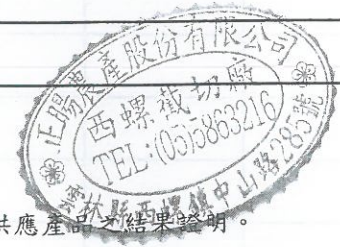 正暘農產股份有限公司
西螺截切廠
TEL:(05)5863216
雲林縣西螺鎮中山路285號
供應產品之結果證明。